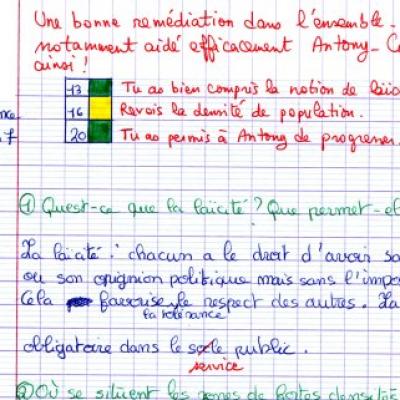 Une bonne remédiation dans l'ensemble.
notamment aidé efficacement Antony_
ainsi !
13 Tu as bien compris la notion de
16 Revois la densité de population.
20 Tu as permis à Antony de progresser
① Quest-ce que la laïcité ? Que permet-el
La laïcité : chacun a le droit d'avoir sa
ou son opignion politique mais sans l'impo
Cela favorise le respect des autres. La
la tolérance
obligatoire dans le public.
service
② Où se situent les zones de fortes densités